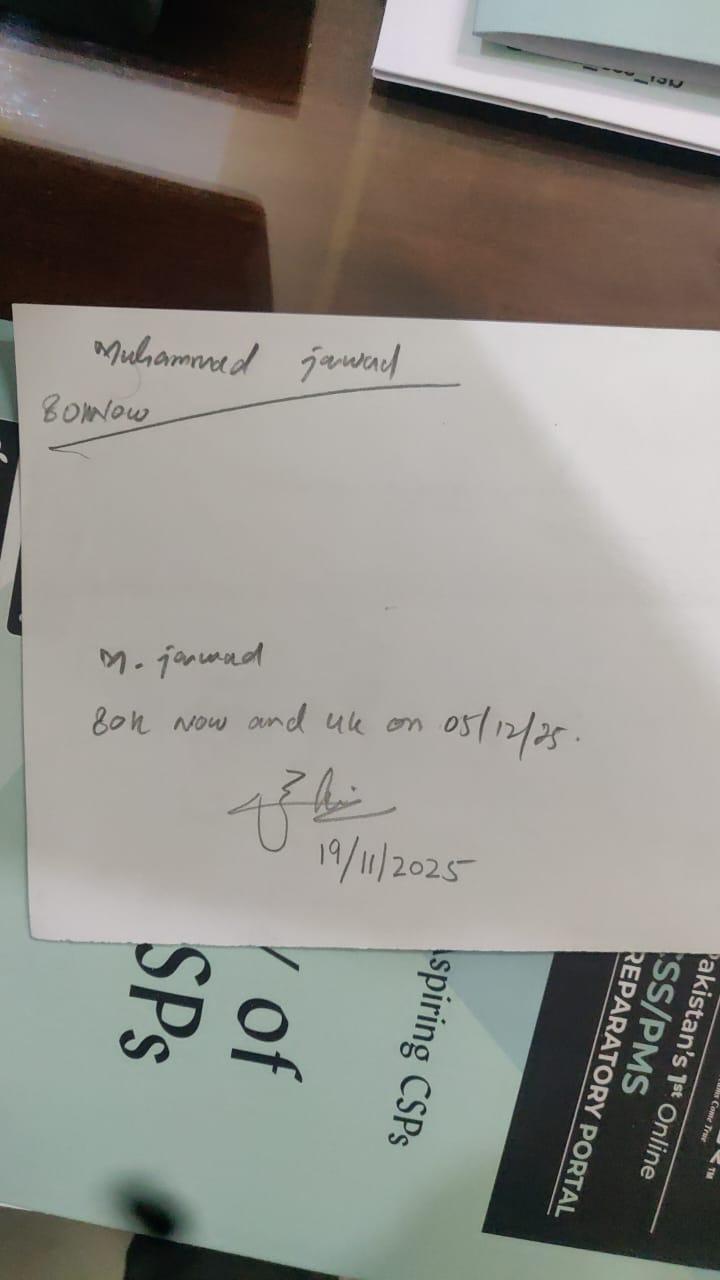 Muhammad jawad
80k Now
M. jawad
80k Now and 4k on 05/12/25.
19/11/2025
/ of
SPs
Aspiring CSPs
Pakistan's 1st Online
CSS/PMS
PREPARATORY PORTAL
TM